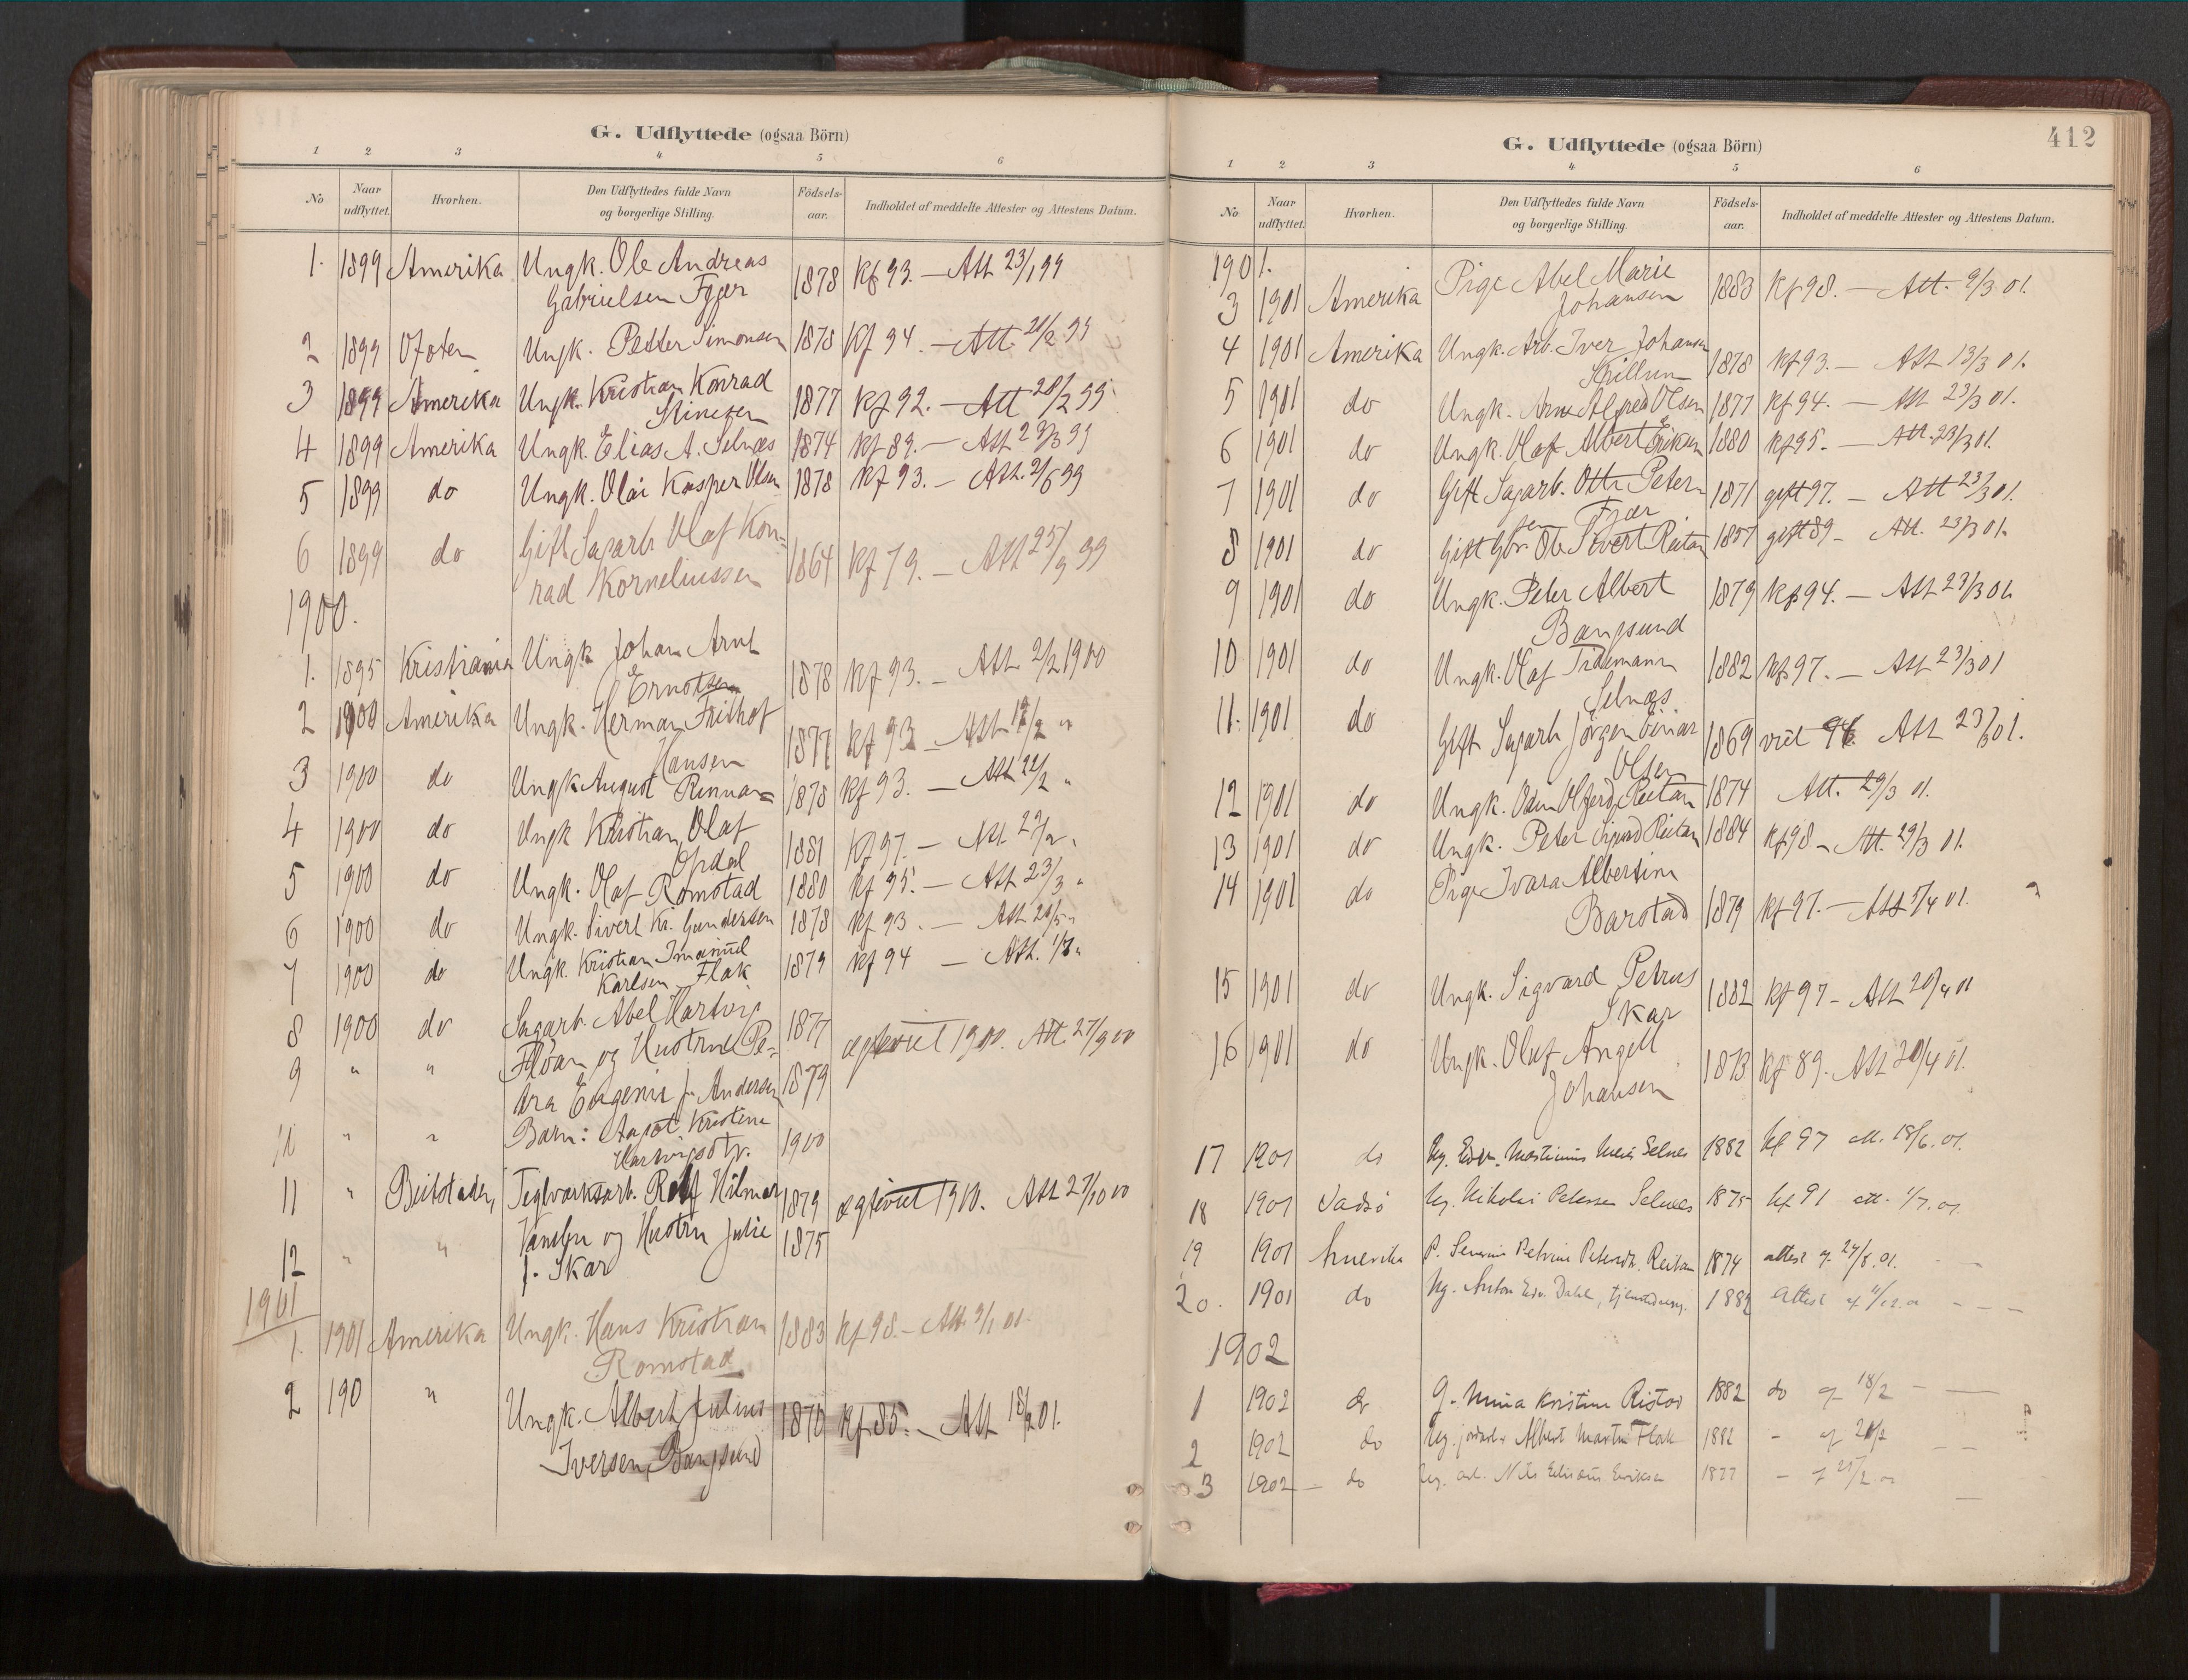 G. Udflyttede (ogsaa Börn)
1 2 3 4 5 6
No Naar udflyttet. Hvorhen. Den Udflyttedes fulde Navn og borgerlige Stilling. Födsels-aar. Indholdet af meddelte Attester og Attestens Datum.
1. 1899 Amerika Ungk. Ole Andreas
Gabrielsen Fjær 1878 Kf 93. — Att 23/1 99
2 1899 Ofoten Ungk. Petter Simonsen 1878 Kf 94. — Att. 20/2 99
3 1899 Amerika Ungk. Kristian Konrad
1877 Kf 92. — Att 28/2 99.
4 1899 Amerika Ungk. Elias A. Selnæs 1874 Kf 89. — Att 29/3 99
5 1899 do Ungk. Olai Kasper Olsen 1878 Kf 93. — Att. 2/6 99
6 1899 do Gift Sagarb Olaf Kon-
rad Korneliussen 1864 Kf 79. — Att 25/9 99
1900.
1. 1895 Kristiania Ungk Johan Arnt
Ernstsen 1878 Kf 93. — Att 2/2 1900
2 1900 Amerika Ungk. Herman Frithof
Hansen 1877 Kf 93 — Att 17/2 "
3 1900 do Ungk August 1878 Kf 93. — Att 22/2 "
4 1900 do Ungk Kristian Olaf
Opdal 1881 Kf 97. — Att 27/2 "
5 1900 do Ungk. Olaf Romstad 1880 Kf 95. — Att 23/3 "
6 1900 do Ungk. Sivert Kr. Gundersen 1878 Kf 93. — Att 20/5 "
7 1900 do Ungk. Kristian Imanuel
Karlsen Flak 1879 Kf 94 — Att.
8 1900 do Sagarb. Abel Hartvig 1877
9 " " Floan og Hustru Pe- ægteviet 1900. Att. 27/9 00
tra Eugenie f. Andersen 1879
10 " " Barn: Aagot Kristine
Hartvigsdtr. 1900
11 " Beitstaden Teglværksarb. Rolf Hilmar 1879 ægteviet 1900. Att 27/10 00
12 " " og Hustru Julie 1875
f. Skar
1901
1. 1901 Amerika Ungk. Hans Kristian 1883 Kf 98. — Att. 9/1 01.
Romstad
2 190 " Ungk. Albert Julius 1870 Kf 85. — Att 18/2 01.
Iversen Bangsund
412
G. Udflyttede (ogsaa Börn)
1 2 3 4 5 6
No Naar udflyttet. Hvorhen. Den Udflyttedes fulde Navn og borgerlige Stilling. Födsels-aar. Indholdet af meddelte Attester og Attestens Datum.
1901.
3 1901 Amerika Pige Abel Marie
Johansen 1883 Kf 98. — Att. 9/3 01.
4 1901 Amerika Ungk. Arb. Iver Johansen
1878 Kf 93. — Att 13/3 01.
5 1901 do Ungk. Arne Alfred Olsen 1877 Kf 94. — Att 23/3 01.
6 1901 do Ungk. Olaf Albert Eriksen 1880 Kf 95. — Att. 23/3 01.
7 1901 do Gift Sagarb. Otto Peter-
sen Fjær 1871 gift 97. — Att 23/3 01.
8 1901 do Gift Gbr. Ole Sivert Reitan 1857 gift 89 — Att. 23/3 01.
9 1901 do Ungk. Peter Albert
Bangsund 1879 Kf 94. — Att 23/3 01.
10 1901 do Ungk. Olaf Tidemann
Selnæs. 1882 Kf 97. — Att 23/3 01
11. 1901 do Gift Sagarb Jörgen Einar
Olsen 1869 viet 96. Att 23/3 01.
12 1901 do Ungk. Odin Reitan 1874 Att. 29/3 01.
13 1901 do Ungk. Peter Sigvard Reitan 1884 Kf 98 — Att. 29/3 01.
14 1901 do Pige Ivara Albertine
Barstad 1879 Kf 97. — Att 1/4 01.
15 1901 do Ungk. Sigvard Petrus
Skar 1882 Kf 97 — Att 20/4 01
16 1901 do Ungk. Oluf Angell
Johansen 1873 Kf 89. Att 20/4 01.
17 1901 do Ug. Edv. Selnes 1882 kf 97 att. 18/6. 01.
18 1901 Vadsö Ug. Nikolai Petersen Selnæs 1875 kf 91 att. 1/7. 01.
19 1901 Amerika P. Severine Petrine Petersdtr. Reitan 1874 attest af 27/8. 01. —
20. 1901 do Ug. Anton Edv. Dahl, tjenestedreng. 1882 attest af — — —
1902
1 1902 do P. Mina Kristine Ristad 1882 do af 18/2 — —
2 1902 do Ug. Albert Martin Flak 1882 — af 20/2 — —
3 1902 — do Ug. arb. Nils Eriksen 1877 — f 25/2 —